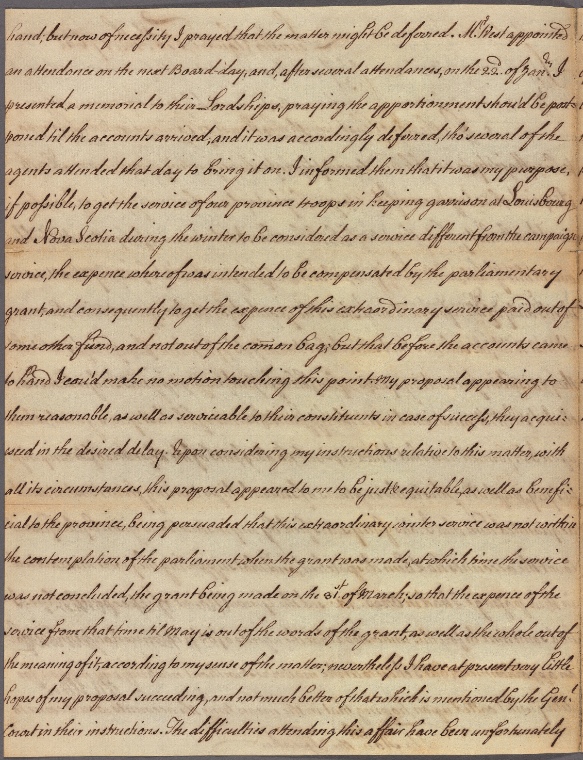 hand; but now of necessity I prayed that the matter might be deferred. Mr. West appointed
an attendance on the next Board-day, and, after several attendances, on the 22d. of Janry. I
presented a memorial to their Lordships, praying the apportionment shou'd be post-
poned til the accounts arrived, and it was accordingly deferred, tho' several of the
agents attended that day to bring it on. I informed them that it was my purpose,
if possible, to get the service of our province troops in keeping garrison at Louisbourg
and Nova Scotia during the winter to be considered as a service different from the campaign
service, the expence whereof was intended to be compensated by the parliamentary
grant, and consequently to get the expence of this extraordinary service paid out of
some other fund, and not out of the com̄on bag; but that before the accounts came
to hand I cou'd make no motion touching this point. My proposal appearing to
them reasonable, as well as serviceable to their constituents in case of success, they acqui-
esced in the desired delay. Upon considering my instructions relative to this matter, with
all its circumstances, this proposal appeared to me to be just & equitable, as well as benefi-
cial to the province, being persuaded that this extraordinary winter service was not within
the contemplation of the parliament, when the grant was made, at which time the service
was not concluded, the grant being made on the 31st. of March; so that the expence of the
service from that time til May is out of the words of the grant, as well as the whole out of
the meaning of it; according to my sense of the matter; nevertheless I have at present very little
hopes of my proposal succeeding, and not much better of that which is mentioned by the Genl.
Court in their instructions. The difficulties attending this affair have been unfortunately